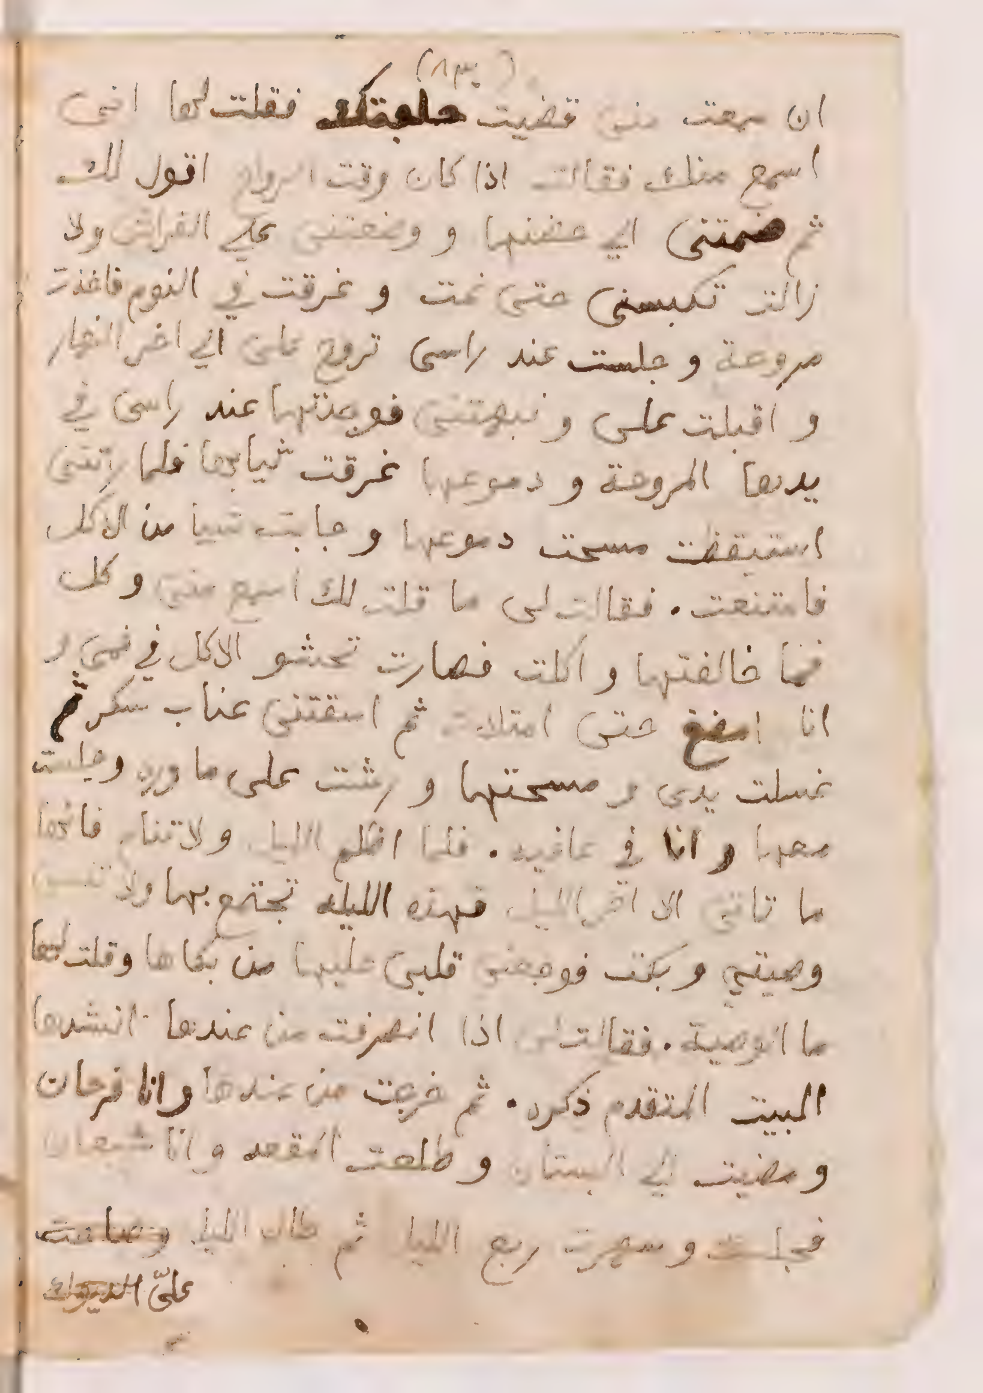 (٨٣)
ان سمعت مني قضيت حاجتك فقلت لها انى
اسمع منك فقالت اذا كان وقت الرواح اقول لك
ثم ضمتنى الي حضنها و وضعتنى علي الفراش ولا
زالت تكبسنى حتى نمت و غرقت في النوم فاخذت
مروحة و جلست عند راسى تروح على الي اخر النهار
و اقبلت على و نبهتنى فوجدتها عند راسى في
يدها المروحة و دموعها غرقت ثيابها فلما راتنى
استيقظت مسحت دموعها و جابت شيا من الاكل
فامتنعت . فقالت لى ما قلت لك اسمع منى و كل
فما خالفتها و اكلت فصارت تحشو الاكل في فمي و
انا امضغ حتى امتلات ثم اسقتنى عناب سكر ثم
غسلت يدى و مسحتها و رشت على ما ورد وجلست
معها و انا في عافيه . فلما اظلم الليل و لا تنام فانها
ما تاتى الا اخر الليل فهذه الليله تجتمع بها ولا تنسى
وصيتي و بكت فوجعنى قلبى عليها من بكاها وقلت لها
ما الوصية . فقالت لى اذا انصرفت من عندها انشدها
البيت المتقدم ذكره . ثم خرجت من عندها و انا فرحان
و مضيت الي البستان و طلعت المقعد و انا شبعان
فجلست و سهرت ربع الليل ثم طال الليل
علىّ